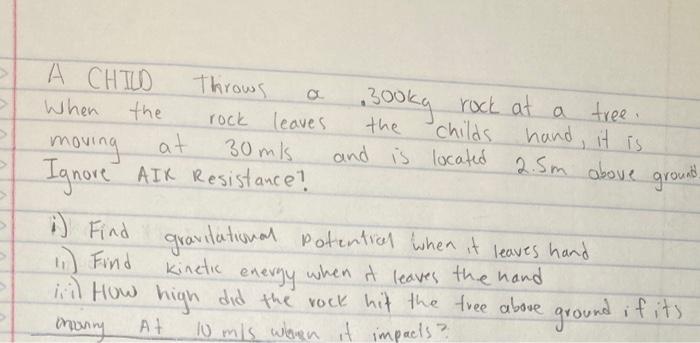 A CHILD Throws a .300kg rock at a tree.
When the rock leaves the childs hand, it is
moving at 30 m/s and is located 2.5m above ground.
Ignore AIR Resistance!
i) Find gravitational potential when it leaves hand
ii) Find kinetic energy when it leaves the hand
iii) How high did the rock hit the tree above ground if its
At 10 m/s when it impacts?